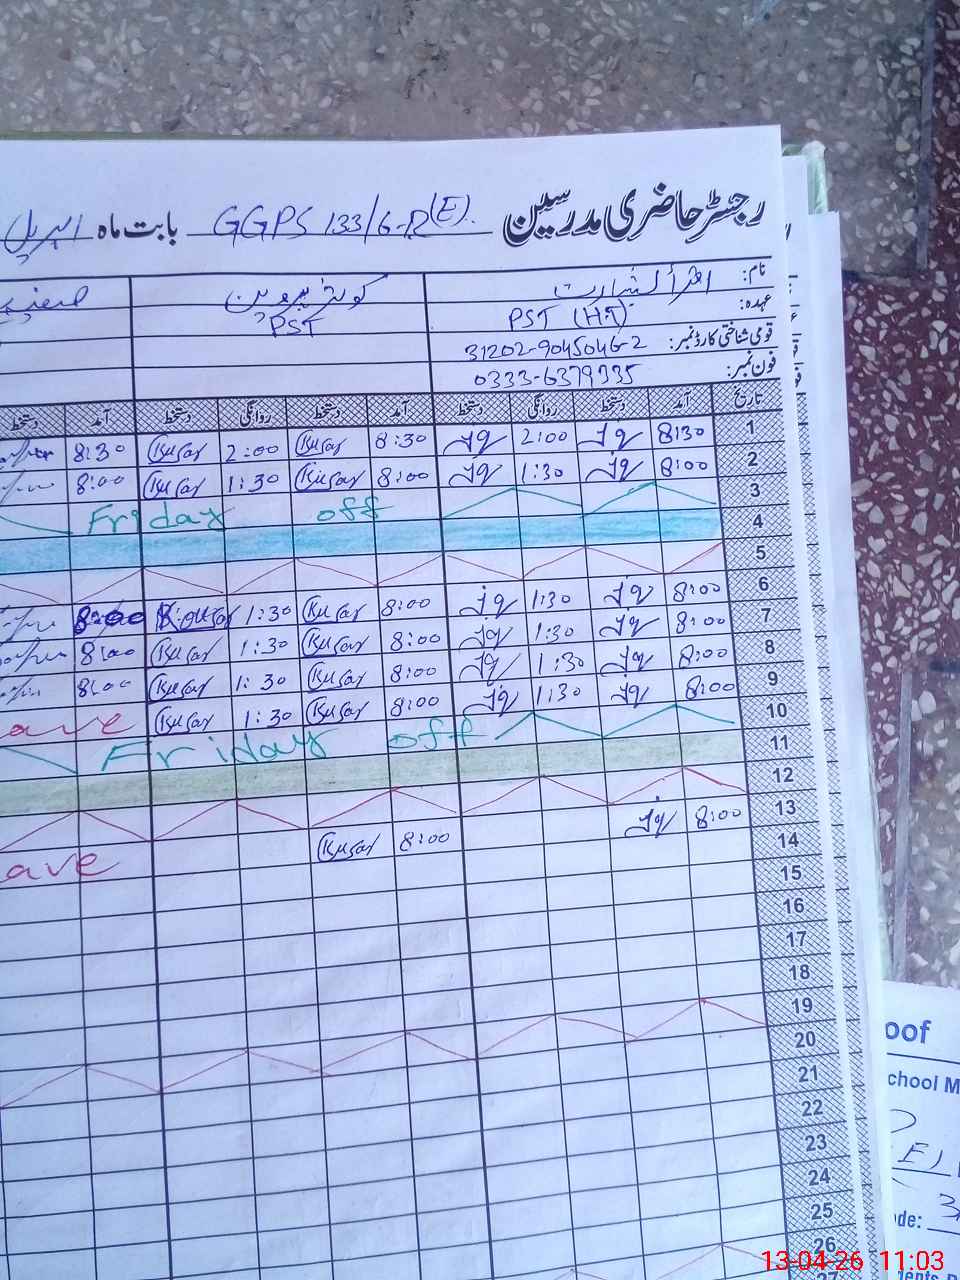 رجسٹر حاضری مدرسین GGPS 133/6-R(E). بابت ماہ اپریل
نام: اقرأ بشارت کوثر پروین
عہدہ: PST (HT) PST
قومی شناختی کارڈ نمبر: 31202-9045046-2
فون نمبر: 0333-6379335
تاریخ آمد دستخط روانگی دستخط آمد دستخط روانگی دستخط آمد دستخط
1 8:30 2:00 8:30 Kusar 2:00 Kusar 8:30
2 8:00 1:30 8:00 Kusar 1:30 Kusar 8:00
3 Friday off
4
5
6 8:00 1:30 8:00 Kusar 1:30 Kousar 8:00
7 8:00 1:30 8:00 Kusar 1:30 Kusar 8:00
8 8:00 1:30 8:00 Kusar 1:30 Kusar 8:00
9 8:00 1:30 8:00 Kusar 1:30 Kusar ave
10 Friday off
11
12
13 8:00 8:00 Kusar ave
14
15
16
17
18
19
20
21
22
23
24
25
26
27
oof
chool M
E)
de:
13-04-26 11:03